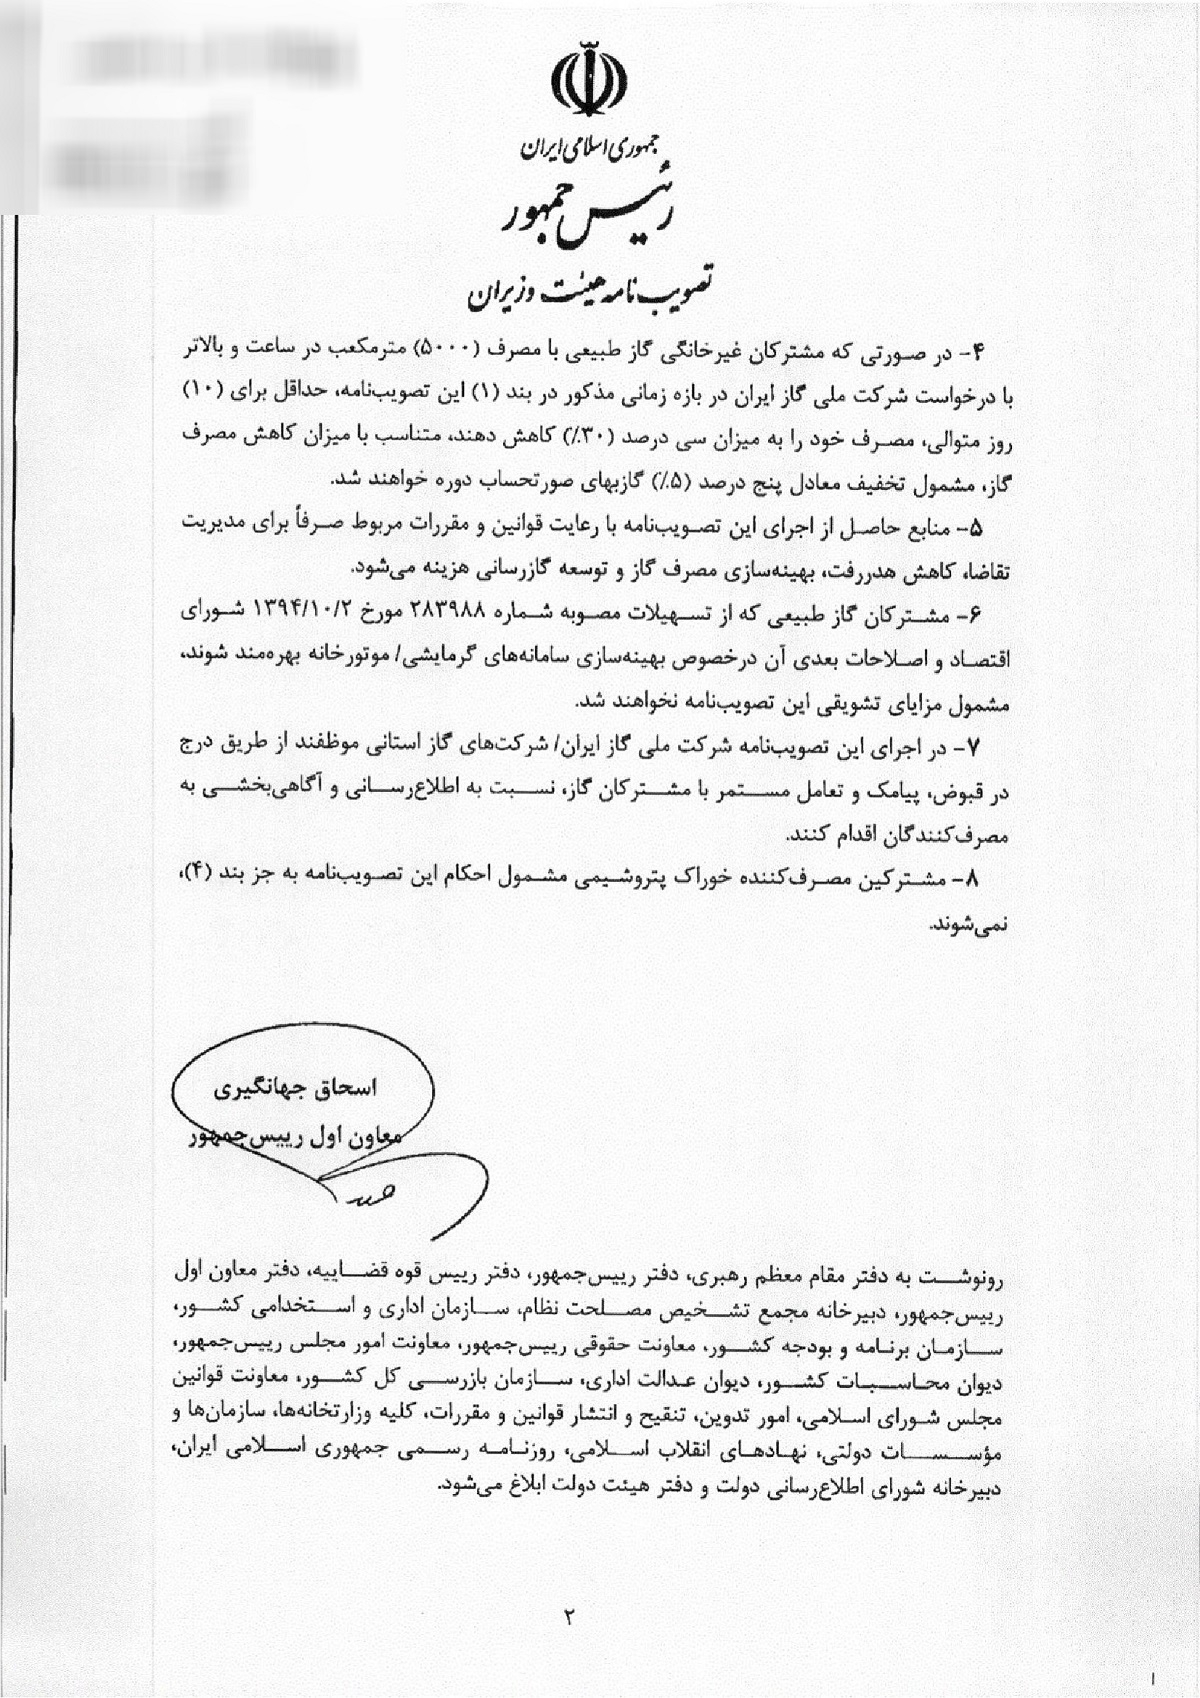 جمهوری اسلامی ایران
رئیس جمهور
تصویب نامه هیئت وزیران
۴- در صورتی که مشترکان غیرخانگی گاز طبیعی با مصرف (۵۰۰۰) مترمکعب در ساعت و بالاتر
با درخواست شرکت ملی گاز ایران در بازه زمانی مذکور در بند (۱) این تصویب‌نامه، حداقل برای (۱۰)
روز متوالی، مصرف خود را به میزان سی درصد (۳۰٪) کاهش دهند، متناسب با میزان کاهش مصرف
گاز، مشمول تخفیف معادل پنج درصد (۵٪) گازبهای صورتحساب دوره خواهند شد.
۵- منابع حاصل از اجرای این تصویب‌نامه با رعایت قوانین و مقررات مربوط صرفاً برای مدیریت
تقاضا، کاهش هدررفت، بهینه‌سازی مصرف گاز و توسعه گازرسانی هزینه می‌شود.
۶- مشترکان گاز طبیعی که از تسهیلات مصوبه شماره ۲۸۳۹۸۸ مورخ ۱۳۹۴/۱۰/۲ شورای
اقتصاد و اصلاحات بعدی آن درخصوص بهینه‌سازی سامانه‌های گرمایشی/ موتورخانه بهره‌مند شوند،
مشمول مزایای تشویقی این تصویب‌نامه نخواهند شد.
۷- در اجرای این تصویب‌نامه شرکت ملی گاز ایران/ شرکت‌های گاز استانی موظفند از طریق درج
در قبوض، پیامک و تعامل مستمر با مشترکان گاز، نسبت به اطلاع‌رسانی و آگاهی‌بخشی به
مصرف‌کنندگان اقدام کنند.
۸- مشترکین مصرف‌کننده خوراک پتروشیمی مشمول احکام این تصویب‌نامه به جز بند (۴)،
نمی‌شوند.
اسحاق جهانگیری
معاون اول رییس‌جمهور
رونوشت به دفتر مقام معظم رهبری، دفتر رییس‌جمهور، دفتر رییس قوه قضاییه، دفتر معاون اول
رییس‌جمهور، دبیرخانه مجمع تشخیص مصلحت نظام، سازمان اداری و استخدامی کشور،
سازمان برنامه و بودجه کشور، معاونت حقوقی رییس‌جمهور، معاونت امور مجلس رییس‌جمهور،
دیوان محاسبات کشور، دیوان عدالت اداری، سازمان بازرسی کل کشور، معاونت قوانین
مجلس شورای اسلامی، امور تدوین، تنقیح و انتشار قوانین و مقررات، کلیه وزارتخانه‌ها، سازمان‌ها و
مؤسسات دولتی، نهادهای انقلاب اسلامی، روزنامه رسمی جمهوری اسلامی ایران،
دبیرخانه شورای اطلاع‌رسانی دولت و دفتر هیئت دولت ابلاغ می‌شود.
۲